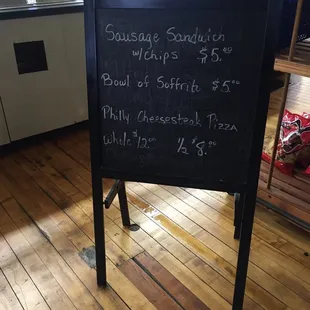 Sausage Sandwich
w/chips $5.00
Bowl of Soffrito $5.00
Philly Cheesesteak Pizza
whole $12.00 1/2 $8.00